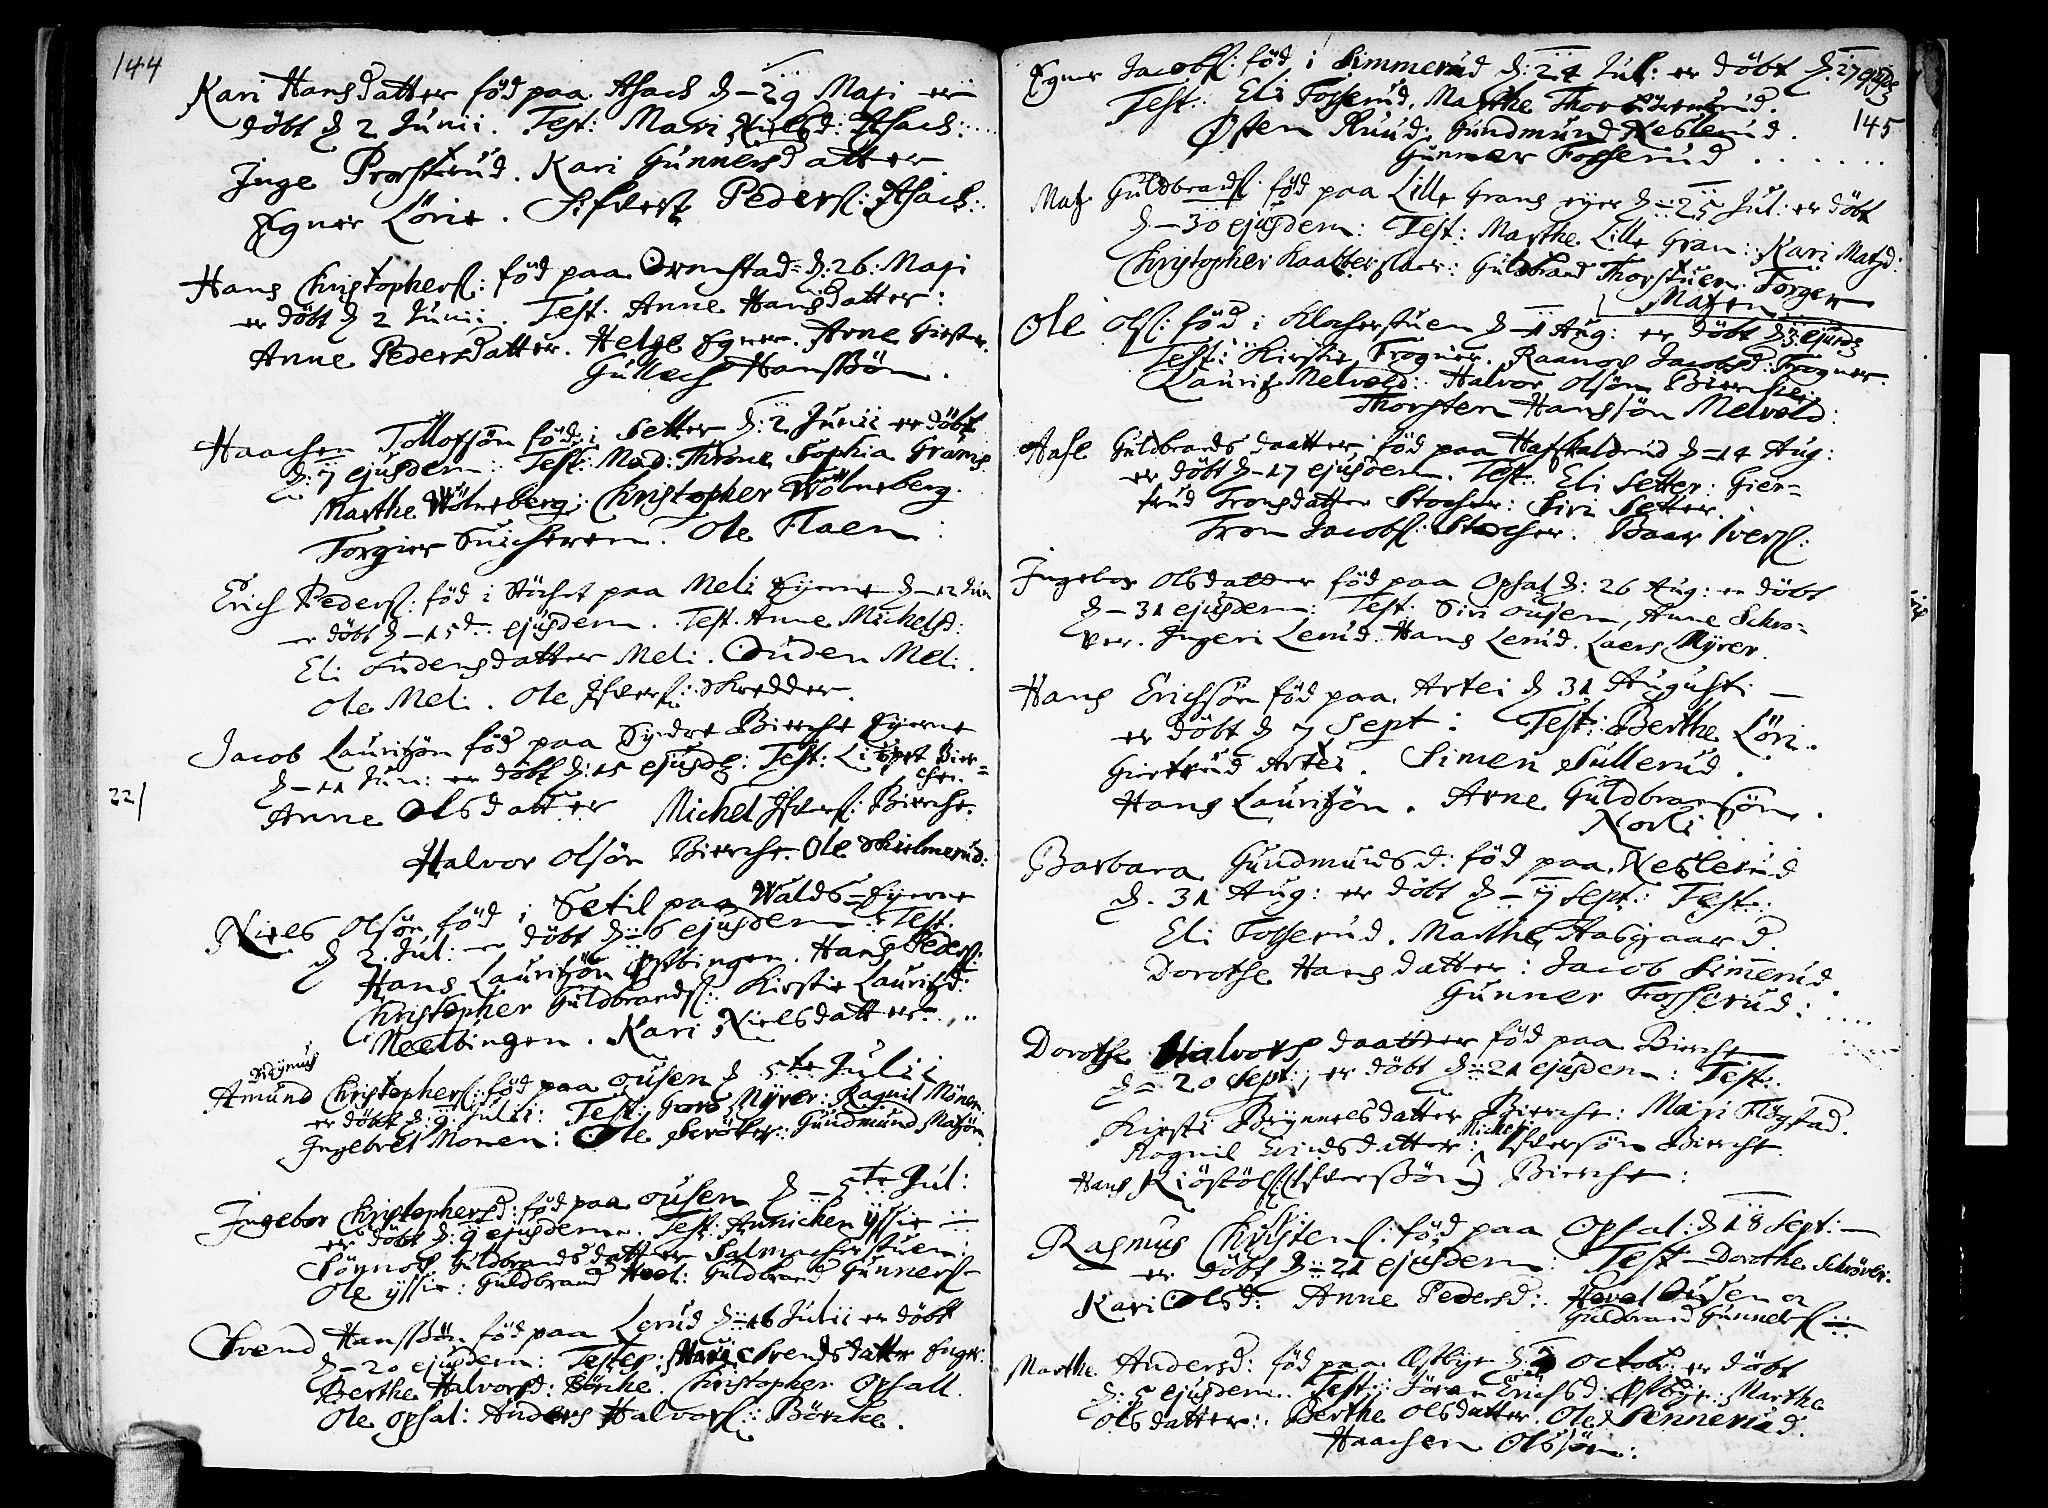 144
Kari Hansdatter föd paa Asach d - 29 Maji er
döbt d 2 Junii. Test: Mari Nielsd: Asach:
Inge Prorstrud. Kari Gunnersdatter
Egner Lörie. Sifverst Peders: Asach:
Hans Christophers: föd paa Ormstad d: 26: Maji
er döbt d 2 Junii. Test. Anne Hansdatter:
Anne Pedersdatter. Helge Egner. Arne
Gullech Hanssøn.
Haachen Tollofsön föd i Setter d: 2 Junii er döbt
d: 7 ejusdem: Test: Mad: Throne Sophia Grams.
Marthe Wölneberg: Christopher Wölneberg.
Torgier. Ole Flaen:
Erich Peders: föd i paa Meli Eyerne d - 12 Jun
er döbt d - 15 ejusdem. Test. Anne Michelsd:
Eli Audensdatter Meli. Ouden Meli.
Ole Meli. Ole Ifvers: Skredder.
Jacob Lauritzön föd paa Syndre Bierche Eyerne
d - 11 Jun: er döbt d: 15 ejusd: Test: Bier=
che.
22/
Anne Olsdatter Michel Ifvers: Bierche.
Halvor Olsön Bierche. Ole Skielmerud:
Niels Olsön föd i Setil paa Walds=Eyerne
d 2. Jul: er döbt d: 6 ejusdem: Test:
Hans Lauritzön. Hans Peders:
Christopher Guldbrands: Kirstie Lauritzd:
Neelbingen. Kari Nielsdatter
Amund Christophers: föd paa Ousen d 5te Julii
er döbt d: 9 Julii: Test: Goro Myrer: Ragnil Mönen
Ingebret Monen: Ole Skröber: Gundmund Matzön
Ingebor Christophersd: föd paa Ousen d - 5te Jul:
er döbt d: 9 ejusdem. Test: Annichen Yssie
Guldbrandsdatter Salmacherstuen:
Ole Yssie: Guldbrand Hoel: Guldbrand Gunners
Svend Hanssön föd paa Lerud d - 16 Julii er döbt
d - 20 ejusdem: Testes: Mari Svendsdatter
Berthe Halvorsd: Börche. Christopher Opsall.
Ole Opsal: Anders Halvors: Börche.
Egner Jacobs: föd i Simmerud d: 24 Jul: er döbt d: 27 ejusd
Test: Eli Fosserud. Marthe
145
Østen Ruud: Gundmund Neslerud.
Gunner Fosserud
Matz Guldbrands: föd paa Lille Grans eyer d - 25 Jul: er döbt
d - 30 ejusdem: Test: Marthe Lille Gran: Kari Matzd:
Christopher Kaatterslaer: Guldbrand Thorstuen. Torger
Maren
Ole Ols: föd i Klocherstuen d - 1 Aug: er döbt d 3 ejusd
Test: Kirstie Frogner. Raanog Jacobsd: Frogner.
Lauritz Melvold. Halvor Olsön Bierche
Thorsten Hanssön Melvold:
Aase Guldbrandsdaatter föd paa Hafshaldrud d - 14 Aug:
er döbt d - 17 ejusdem. Test. Eli Setter: Gier=
trud Tronsdatter Stocher: Siri Setter.
Tron Jacobs: Stocher. Baar Ivers:
Ingebor Olsdatter föd paa Opsal d: 26 Aug: er döbt
d - 31 ejusdem: Test: Siri Ousen, Anne Schrö=
ver. Ingeri Lerud. Hans Lerud. Laers Myrer.
Hans Erichsön föd paa Artei d 31 Augusti
er döbt d 7 Sept: Test: Berthe Löri.
Giertrud Artei. Simen Sullerud.
Hans Lauritzön. Arne Guldbransön
Norli.
Barbara Gundmundsd: föd paa Neslerud
d. 31 Aug: er döbt d - 7 Sept: Test:
Eli Fosserud. Marthe Aasgaard.
Dorothe Hansdatter: Jacob Simerud.
Gunner Fosserud:
Dorothe Halvorsdaatter föd paa Bierche
d - 20 Sept:, er döbt d: 21 ejusdem: Test:
Kirsti Brynnelsdatter Bierche: Mari Flogstad.
Ragnil Erichsdatter: Michel Ifversön Bierche
Hans Kiöstöls (Ifverssön) Bierche:
Rasmus Christens: föd paa Opsal: d 18 Sept:
er döbt d: 21 ejusdem: Test - Dorothe Schröver.
Kari Olsd: Anne Pedersd: Ousen
Guldbrand Gunners
Marthe Andersd: föd paa Østbye d: 2 Octob: er döbt
d: 5 ejusdem. Test: Jöran Erichsd: Østbye: Marthe
Olsdatter: Berthe Olsdatter. Ole Pennerud.
Haachen Olssön: